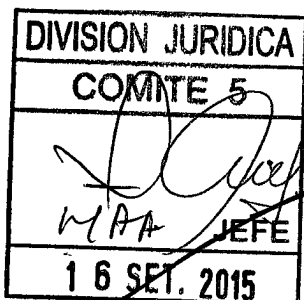 DIVISION JURIDICA
COMITE 5
MAA JEFE
16 SET. 2015